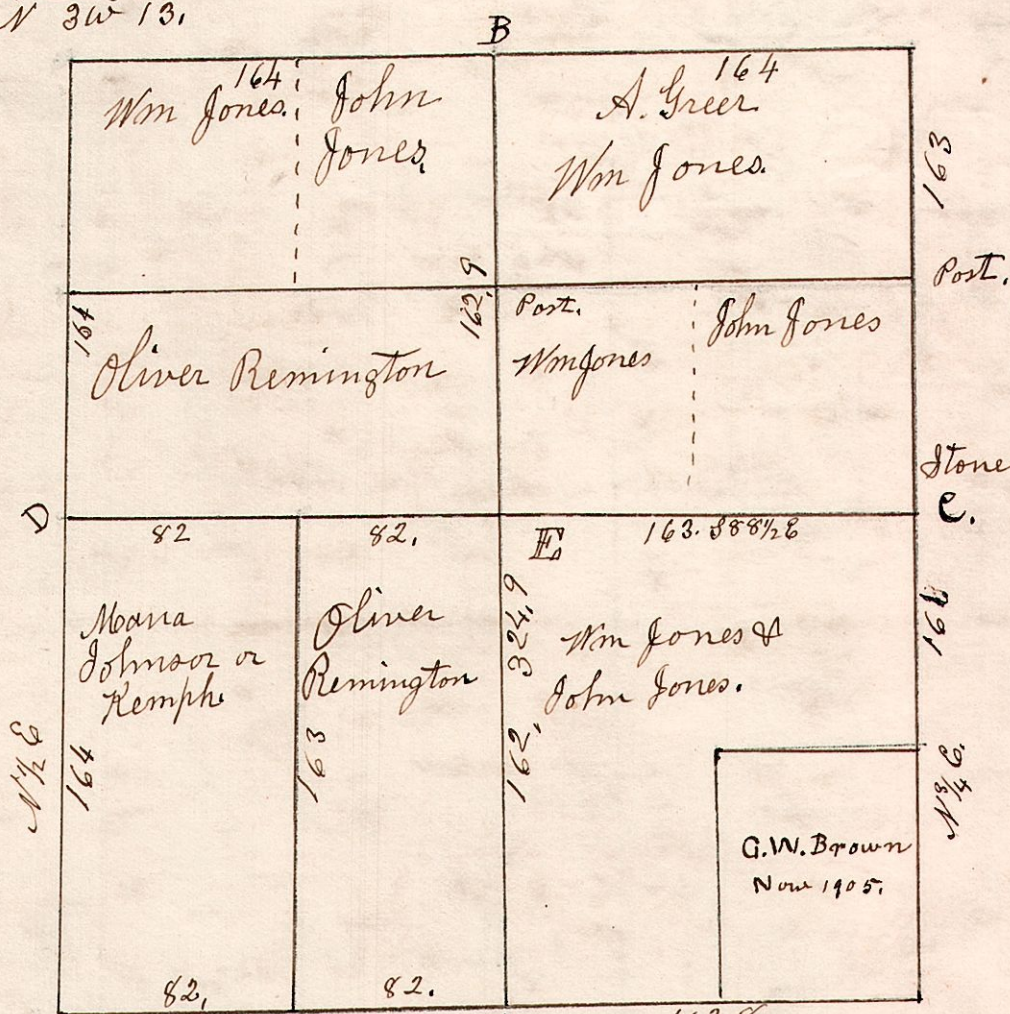 N 3W 13.
B
164
Wm Jones.
John
Jones.
164
A. Greer.
Wm Jones.
163
Post.
164
Oliver Remington
162.9
Post.
Wm Jones
John Jones
Stone
C.
D
82
82.
E
163. S88½E
Maria
Johnson or
Kemph.
Oliver
Remington
324.9
Wm Jones &
John Jones.
N½E
164
163
162.
N¾E.
G.W. Brown
Now 1905.
82.
82.